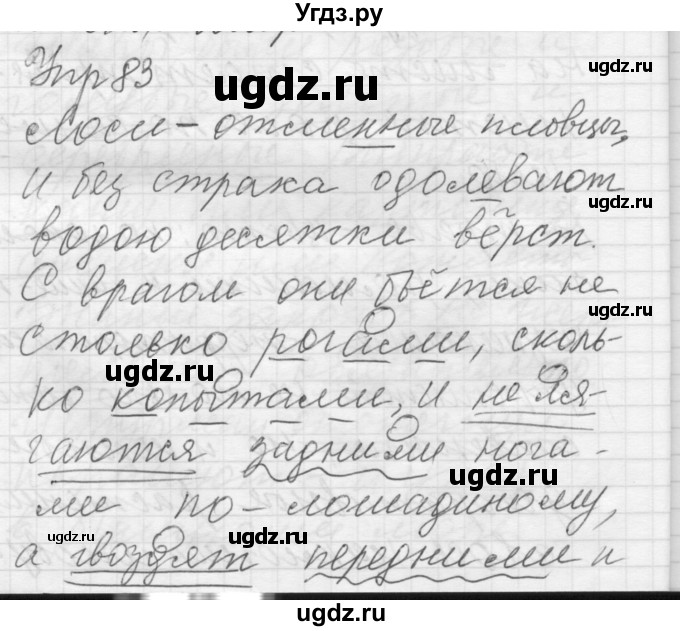 Угдз.ру
Упр 83
ugdz.ru
ugdz.ru
Лоси - отменные пловцы,
и без страха одолевают
ugdz.ru
водою десятки вёрст.
С врагом они бьётся не
ugdz.ru
столько рогами, сколь-
ко копытами, и не ля-
гаются задними нога-
ugdz.ru
ми по-лошадиному,
ugdz.ru
ugdz.ru
а гвоздят передними и
ugdz.ru
ugdz.ru